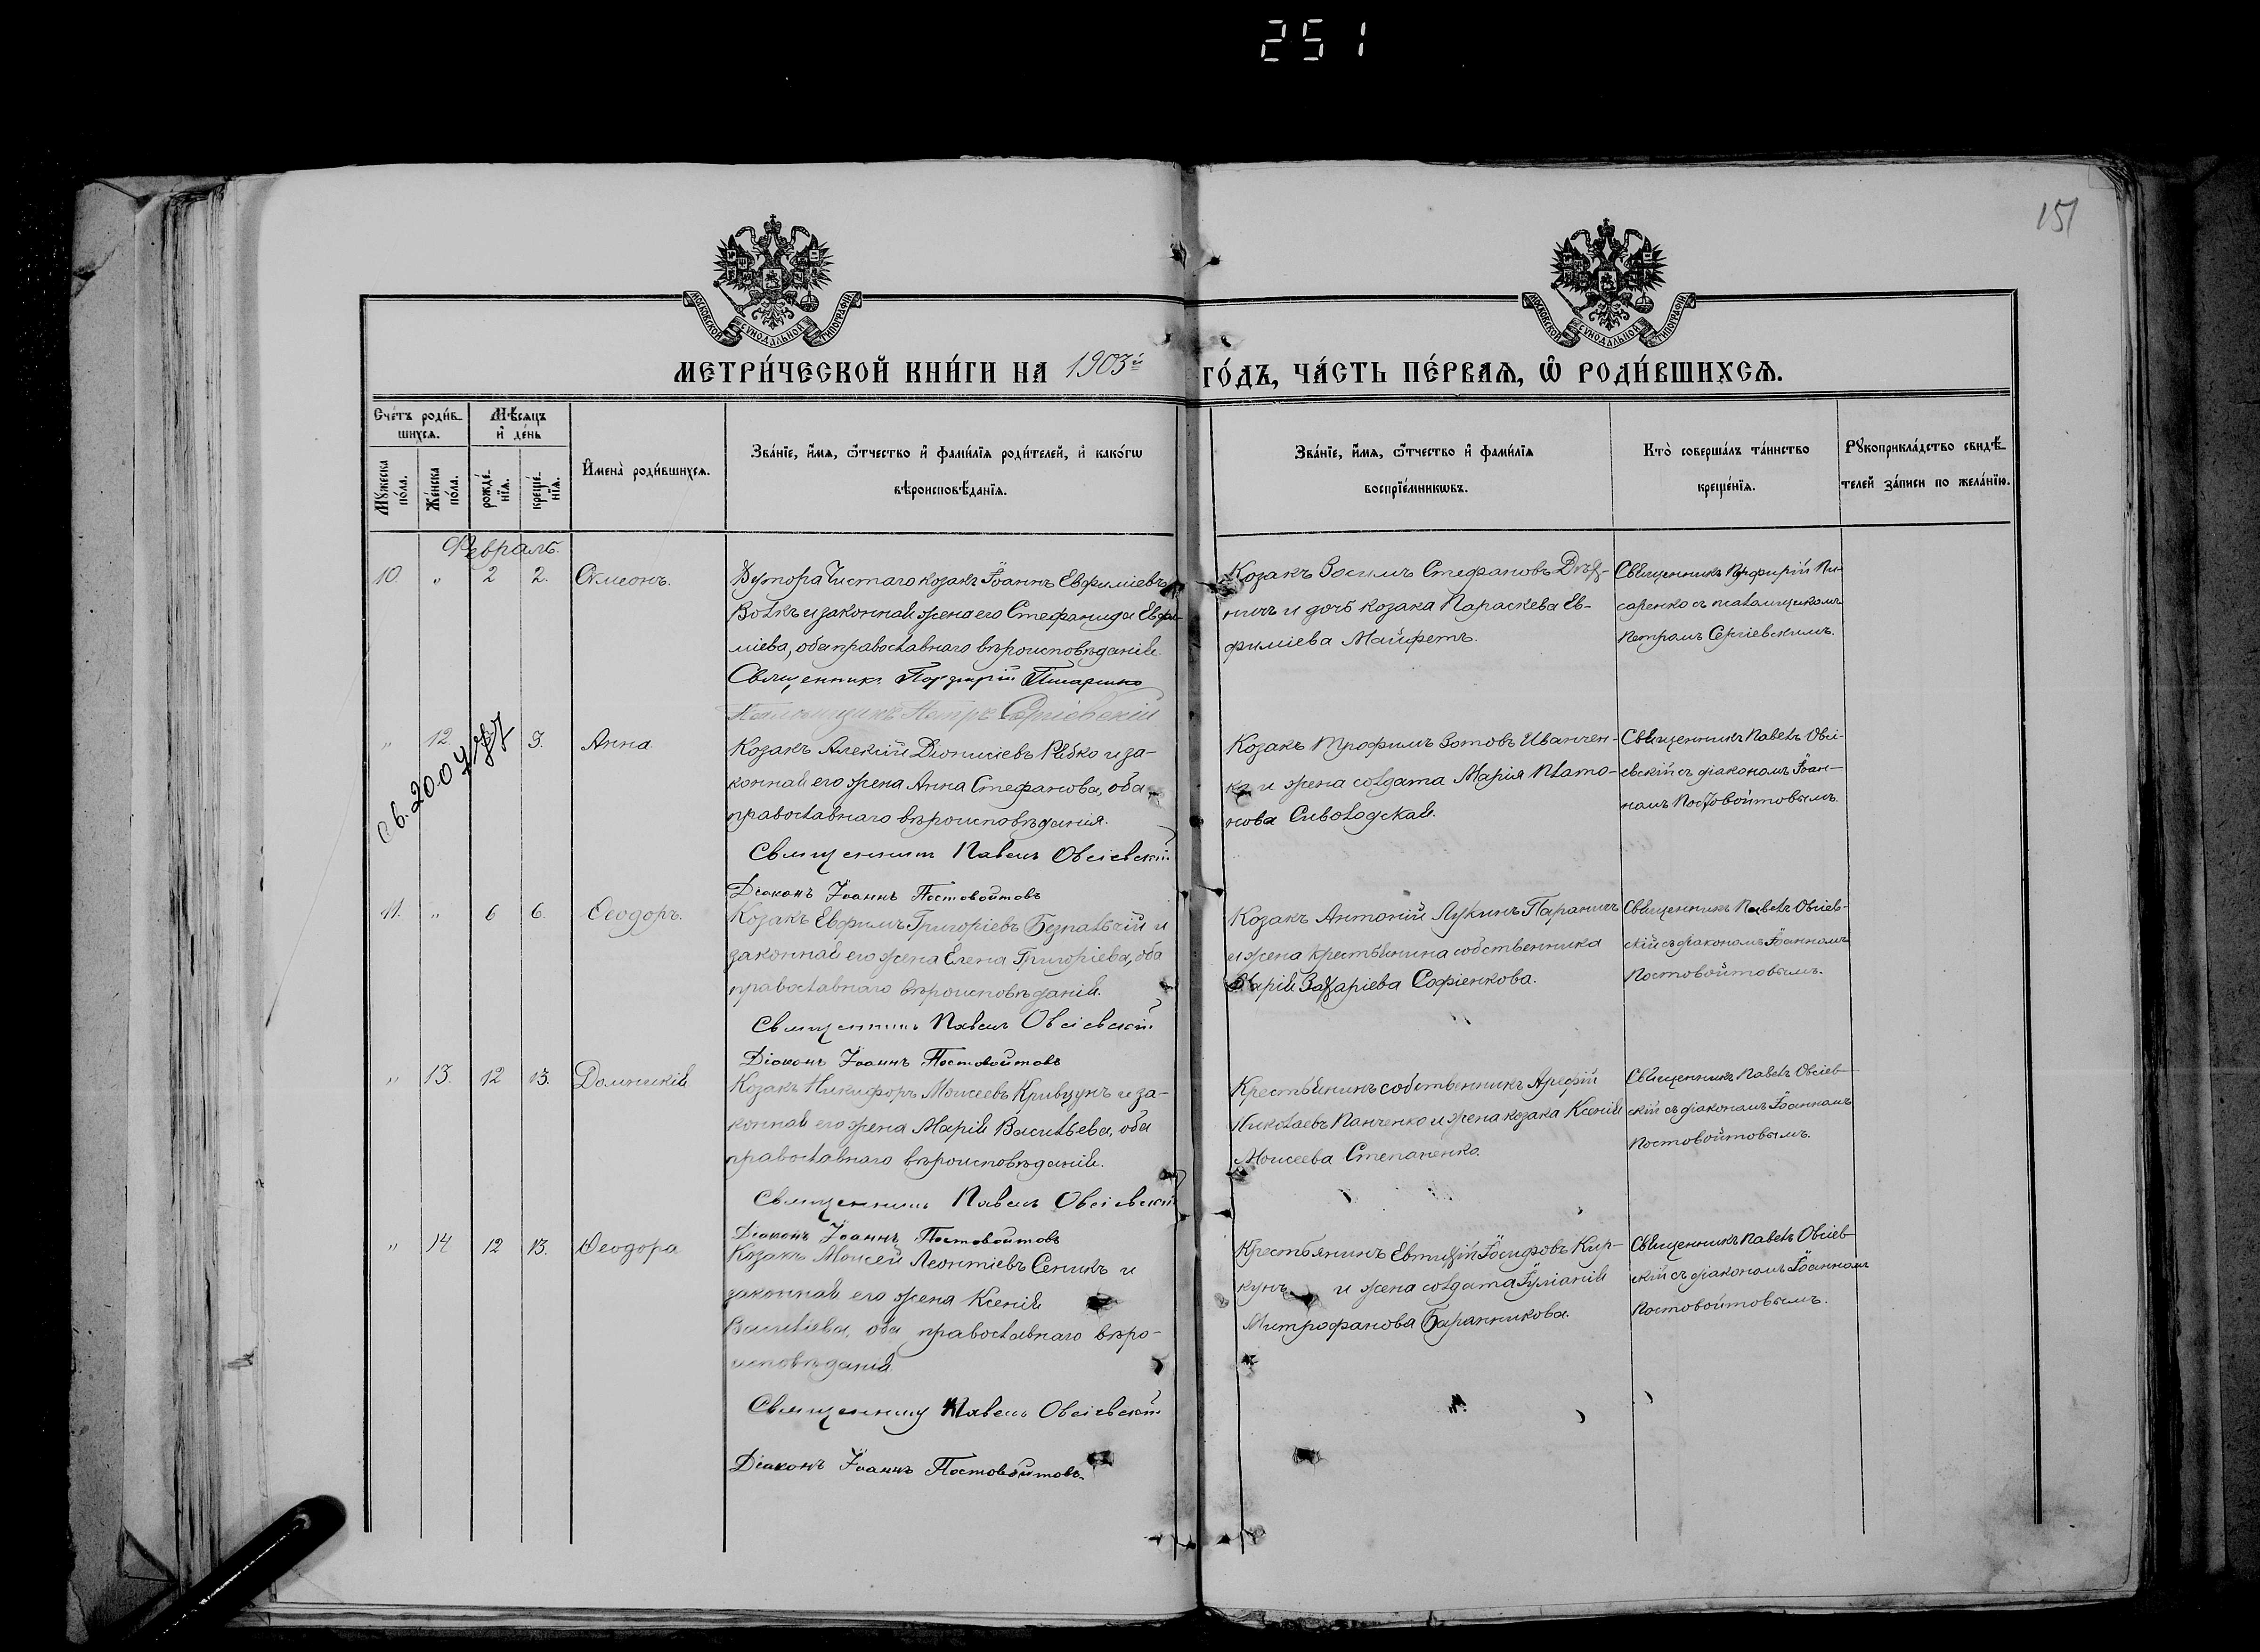 251
151
МОСКОВСКОЙ СѴНОДАЛЬНОЙ ТИПОГРАФІИ
МОСКОВСКОЙ СѴНОДАЛЬНОЙ ТИПОГРАФІИ
МЕТРИ́ЧЕСКОЙ КНИ́ГИ НА 1903й ГО́ДЪ, ЧА́СТЬ ПЕ́РВАѦ, Ѡ҆ РОДИ́ВШИХСѦ.
Сче́тъ роди́в-
шихсѧ.
Мꙋ́жеска по́ла.
Же́нска по́ла.
Мѣ́сѧцъ
и҆ де́нь
рожде́-
нїѧ.
креще́-
нїѧ.
И҆мена̀ роди́вшихсѧ.
Зва́нїе, и҆́мѧ, ѻ҆́тчество и҆ фами́лїѧ роди́телей, и҆ како́гѡ
вѣроисповѣ́данїѧ.
Зва́нїе, и҆́мѧ, ѻ҆́тчество и҆ фами́лїѧ
воспрїе́мникѡвъ.
Кто̀ соверша́лъ та́инство
креще́нїѧ.
Рꙋкоприкла́дство свидѣ́-
телей за́писи по жела́нїю.
Февраль.
10. " 2 2. Симеонъ.
Хутора Чистаго козакъ Іоаннъ Евфиміевъ
Волкъ и законная жена его Стефанида Евфи-
міева, оба православнаго вѣроисповѣданія.
Священникъ Порфирій Писаренко
Псаломщикъ Петръ Сергіевскій
Козакъ Стефановъ
и дочь козака Параскева Ев-
филиіева Майфетъ.
Священникъ Порфирій Пи-
саренко съ псаломщикомъ
Петромъ Сергіевскимъ.
" 12 3. Анна
Козакъ Алексій Діонисіевъ Рябко и за-
конная его жена Анна Стефанова, оба
православнаго вѣроисповѣданія.
Священникъ Павелъ Овсіевскій
Діаконъ Іоаннъ Постовойтовъ
Козакъ Трофимъ Зотовъ Иванчен-
ко и жена солдата Марія Плато-
нова Сиволодская.
Священникъ Павелъ Овсі-
евскій съ діакономъ Іоан-
номъ Постовойтовымъ.
11. " 6 6. Ѳеодоръ.
Козакъ Евфимъ Григоріевъ Безпальчій и
законная его жена Елена Григоріева, оба
православнаго вѣроисповѣданія.
Священникъ Павелъ Овсіевскій
Діаконъ Іоаннъ Постовойтовъ
Козакъ Антоній Лукинъ Паранич
и жена крестьянина собственника
Марія Захаріева Софіенкова.
Священникъ Павелъ Овсіев-
скій съ діакономъ Іоанномъ
Постовойтовымъ.
" 13. 12 13. Домникія
Козакъ Никифоръ Моисеевъ Кривцунъ и за-
конная его жена Марія Васильева, оба
православнаго вѣроисповѣданія.
Священникъ Павелъ Овсіевскій
Діаконъ Іоаннъ Постовойтовъ
Крестьянинъ собственникъ Арефій
Николаевъ Панченко и жена козака Ксенія
Моисеева Степаненко.
Священникъ Павелъ Овсіев-
скій съ діакономъ Іоанномъ
Постовойтовымъ.
" 14 12 13. Ѳеодора
Козакъ Моисей Леонтіевъ Сеникъ и
законная его жена Ксенія
Василіева, оба православнаго вѣро-
исповѣданія.
Священникъ Павелъ Овсіевскій
Діаконъ Іоаннъ Постовойтовъ.
Крестьянинъ Евтихій Іосифовъ Кир-
кунъ и жена солдата Іуліанія
Митрофанова Баранникова.
Священникъ Павелъ Овсіев-
скій съ діакономъ Іоанномъ
Постовойтовымъ.